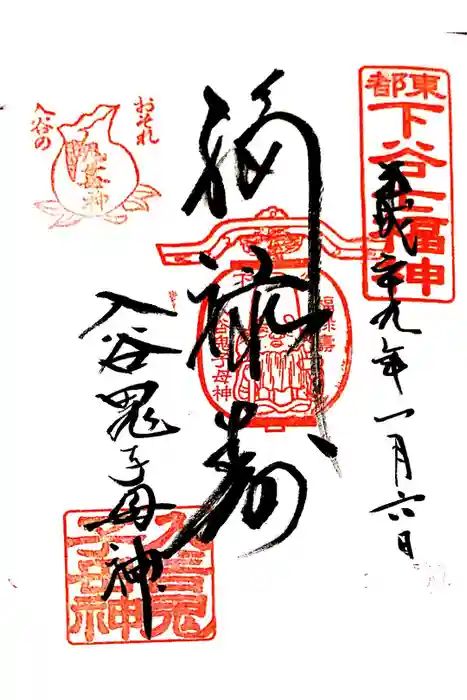 東都
下谷七福神
平成二十九年一月六日
福禄寿
福禄寿
入谷鬼子母神
おそれ
入谷の
鬼子母神
入谷鬼子母神
入谷鬼子母神